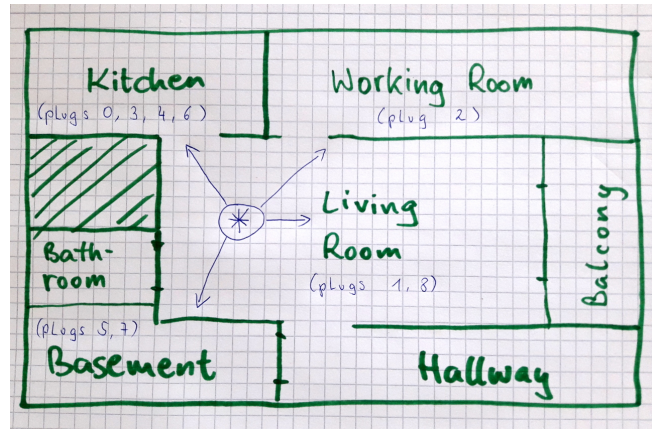 Kitchen
(plugs 0, 3, 4, 6)
Working Room
(plug 2)
Living
Room
(plugs 1, 8)
Balcony
Bath-
room
(plugs 5, 7)
Basement
Hallway